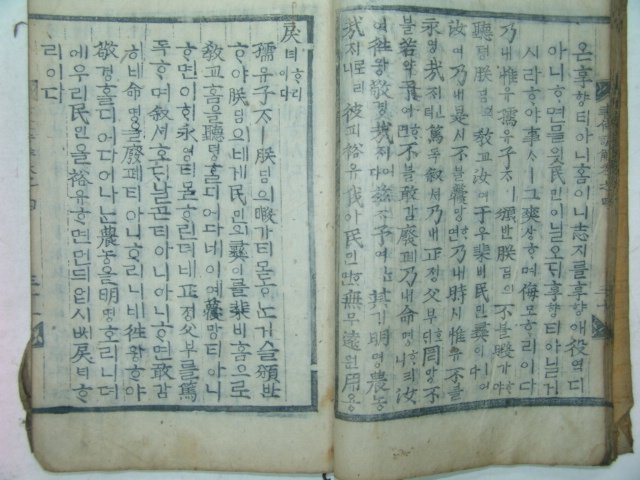 은享향티아니홈이니志지를享향애役역디
아니ᄒᆞ면믈읫民민이닐오ᄃᆡ享향티아닐거
시라ᄒᆞ야事ᄉᆞㅣ그爽상ᄒᆞ며侮모ᄒᆞ리이다
乃내惟유孺유子ᄌᆞㅣ頒반朕딤의不블暇가ᄒᆞ야
聽텽朕딤의敎교汝여于우棐비民민彛이니이다
汝여乃내是시不블蘉망ᄒᆞ면乃내時시惟유不블
永영哉ᄌᆡ뎌篤독敘셔乃내正졍父부호ᄃᆡ罔망不
블若약予여ᄒᆞ면不블敢감廢폐乃내命명ᄒᆞ리니汝
여往왕敬경哉ᄌᆡ다玆ᄌᆞ予여ᄂᆞᆫ其기明명農농
哉ᄌᆡ로리니彼피裕유我아民민ᄒᆞ면無무遠원用용
戾려ᄒᆞ리이다
孺유子ᄌᆞㅣ朕딤의暇가티몯ᄒᆞ논거슬頒반
ᄒᆞ야朕딤의네게民민의彛이를棐비홈으로
敎교홈을聽텽ᄒᆞᆯ디어다네이예蘉망티아니
ᄒᆞ면이히永영티몯ᄒᆞ린뎌네正졍父부를篤
독ᄒᆞ며敘셔호ᄃᆡ날ᄀᆞᆮ티아니아니ᄒᆞ면敢감
히네命명을廢폐티아니ᄒᆞ리니네往왕ᄒᆞ야
敬경ᄒᆞᆯ디어다나ᄂᆞᆫ農농을明명호리니뎌
에우리民민을裕유ᄒᆞ면먼ᄃᆡ업시戾려ᄒᆞ
리이다